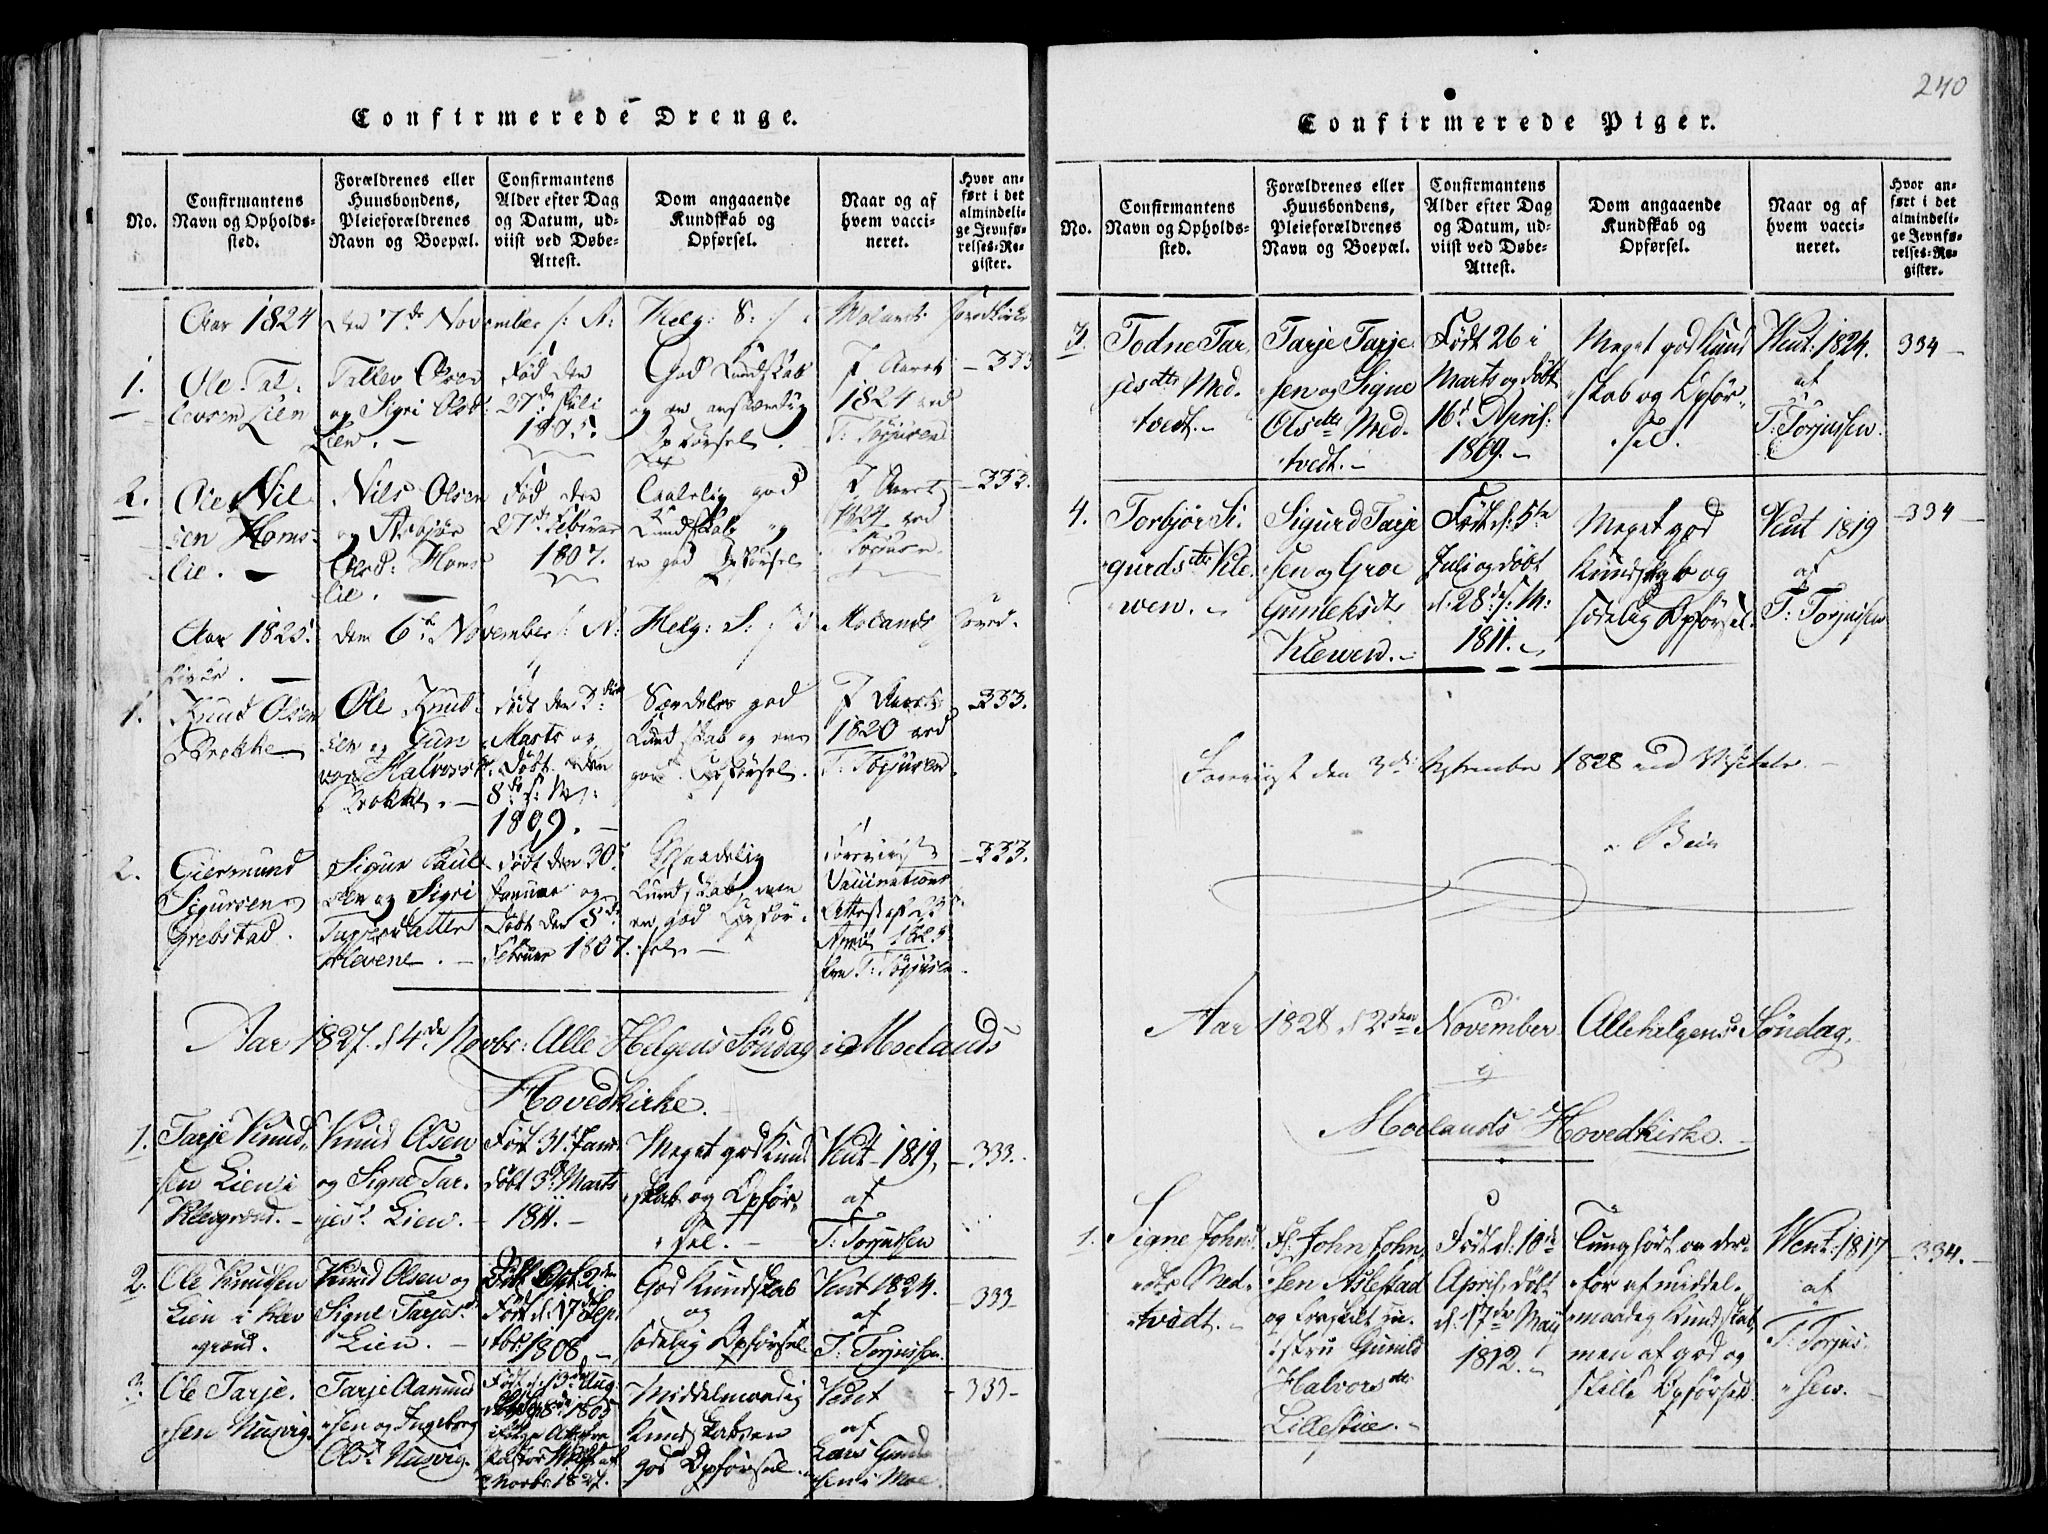 Confirmerede Drenge.
No.
Confirmantens
Navn og Opholds-
sted.
Forældrenes eller
Huusbondens,
Pleieforældrenes
Navn og Boepæl.
Confirmantens
Alder efter Dag
og Datum, ud-
viist ved Døbe-
Attest.
Dom angaaende
Kundskab og
Opførsel.
Naar og af
hvem vacci-
neret.
Hvor an-
ført i det
almindeli-
ge Jevnfø-
relses-Re-
gister.
Aar 1824 den 7de November /: A: Helg: S: :/ i Molands Hovedkirke
1.
Ole Tal-
levsen Lien
Tallev Olsen
og Sigri Olsd:
Lien. -
Fød den
27de Juli
1805.
God Kundskab
og en anstændig
Opførsel.
I Aaret
1824 ved
T: Torjusen
- 333
2.
Ole Nil
sen Homs-
lie. -
Nils Olsen
og Asbjør
Olsd: Homs
lie. -
Fød den
27de Februar
1807.
Taalelig god
Kundskab og
en god Opførsel
I Aaret
1824 ved
Torjusen
- 333.
Aar 1825. den 6te November /: A: Helg: S: :/ i Molands Hoved-
kirke. -
1.
Knud Olsen
Brokke
Ole Knud-
sen og Gun
vor Halvorsd.
Brokke. -
Født den 3die
Marts og
døbt den
8de s: M:
1809. -
Særdeles god
Kundskab og en
god Opførsel.
I Aaret
1820 ved
T: Torjusen.
333.
2.
Giermund
Sigursen
Grebstad.
Sigur Paul
sen og Sigri
Tarjesdatter
Klevene. -
Født den 30te
Januar og
døbt den 5de
Februar 1807.
Maadelig
Kundskab, men
en god Opfør-
sel. -
foreviist
Vaccinations
Attest af 23
April 1825
fra T: Torjusen
- 333.
Aar 1827. d 4de Novbr: Alle Helgens Søndag i Moelands
Hovedkirke.
1.
Tarje Knud-
sen Lien i
Klevgrend. -
Knud Olsen
og Signe Tar-
jesd. Lien. -
Født 31te Janr
døbt 3de Marts
1811. -
Meget god Kund
skab og Opfør-
sel. -
Vent. 1819,
af
T: Torjussen
- 333.
2.
Ole Knudsen
Lien i Klev
grend.
Knud Olsen og
Signe Tarjesd.
Lien. -
Født d: 17de Sep-
tbr 1808. -
God Kundskab
og
sædelig Opførsel
Vent 1824.
af
T: Torjussen.
333-
3.
Ole Tarje-
sen Nusvig.
Tarje Aamund
sen og Ingeborg
Olsd. Nusvig.
Født d: 13de Aug.
1805
2 Novbr. 1827.
Middelmaadig
Kundskab en
god Opførsel.
Vedet
af
Lars Gunde
sen i Moe.
- 333-
240
Confirmerede Piger.
No.
Confirmantens
Navn og Opholds-
sted.
Forældrenes eller
Huusbondens,
Pleieforældrenes
Navn og Boepæl.
Confirmantens
Alder efter Dag
og Datum, ud-
viist ved Døbe-
Attest.
Dom angaaende
Kundskab og
Opførsel.
Naar og af
hvem vacci-
neret.
Hvor an-
ført i det
almindeli-
ge Jevnfø-
relses-Re-
gister.
3.
Todne Tar
jesdtr Med-
tvedt. -
Tarje Tarje
sen og Signe
Olsdtr Med-
tvedt. -
Født 26 i
Marts og døbt
16d April:
1809. -
Meget god Kund
skab og Opfør-
sel.
Vent: 1824.
af
T: Torjussen.
334 -
4.
Torbjør Si-
gurdsdtr Kle-
wen. -
Sigurd Tarje
sen og Groe
Gunleksdtr
Klewen. -
Født d: 5te
Juli og døbt
d: 28de s: M:
1811. -
Meget god
Kundskab og
sædelig Opførsel.
Vent 1819
af
T: Torjussen
334 -
Foreviist den 3de September 1828 ved Visitats. -
Bein
Aar 1828 d 2den November Allehelgens Søndag,
i
Moelands Hovedkirke. -
1.
Signe Johns-
dtr Med-
tvedt. -
F: John John
sen Aslestad
og
Gunild
Halvorsdtr
Lillestue. -
Født d: 10de
April døbt
d: 17de Maji
1812. -
Tunghørt og der-
for af middel-
maadig Kundskab,
men af god og
stille Opførsel.
Vent: 1817
af
T: Torjus-
sen. -
334. -